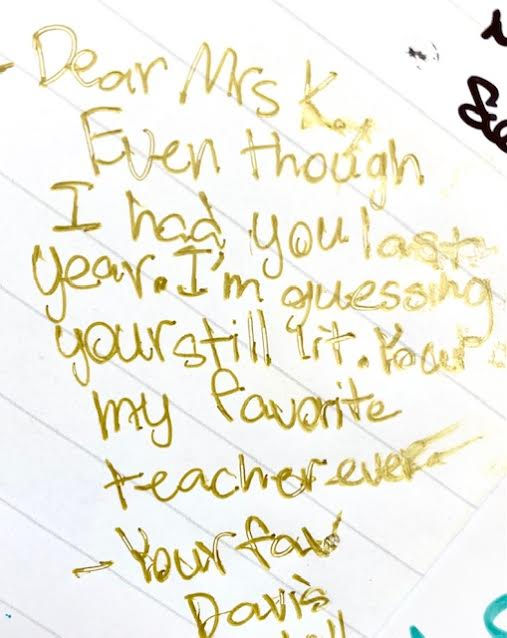 Dear Mrs K.
Even though
I had you last
year. I'm guessing
your still lit. Your
my favorite
teacher ever
- Your fav
Davis